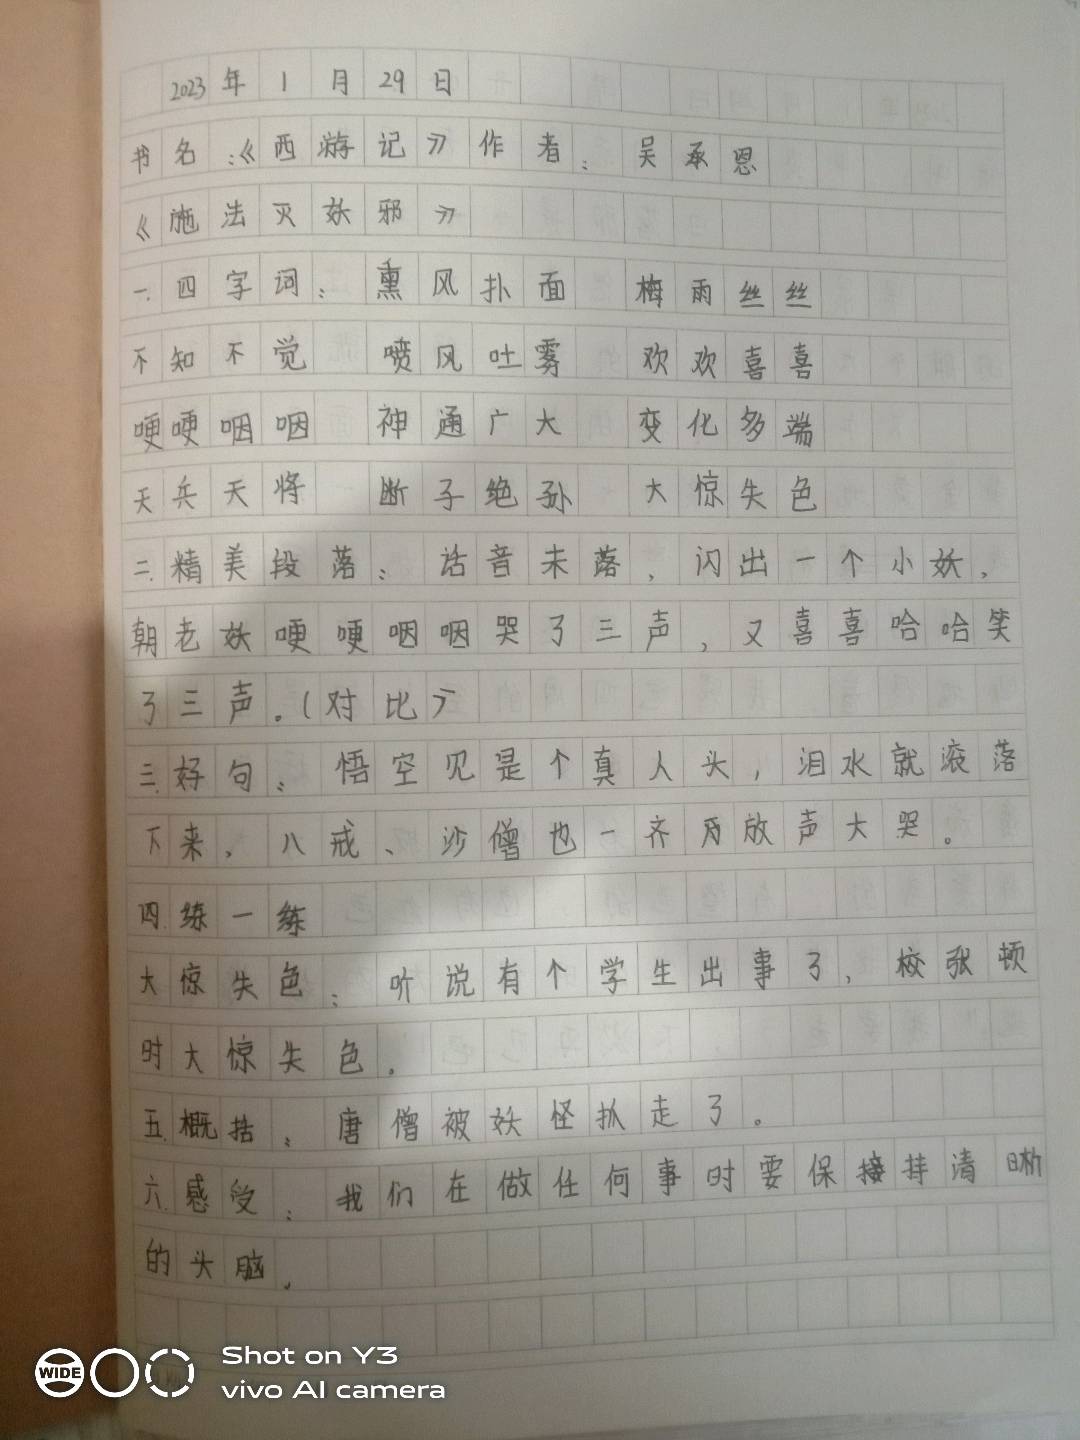 2023年1月29日
书名:《西游记》作者:吴承恩
《施法灭妖邪》
一.四字词:熏风扑面 梅雨丝丝
不知不觉 喷风吐雾 欢欢喜喜
哽哽咽咽 神通广大 变化多端
天兵天将 断子绝孙 大惊失色
二.精美段落:话音未落,闪出一个小妖,
朝老妖哽哽咽咽哭了三声,又喜喜哈哈笑
了三声。(对比》
三.好句:悟空见是个真人头,泪水就滚落
下来,八戒、沙僧也一齐放声大哭。
四.练一练
大惊失色:听说有个学生出事了,校张顿
时大惊失色。
五.概括:唐僧被妖怪抓走了。
六.感受:我们在做任何事时要保持清晰
的头脑.
WIDE
Shot on Y3
vivo AI camera